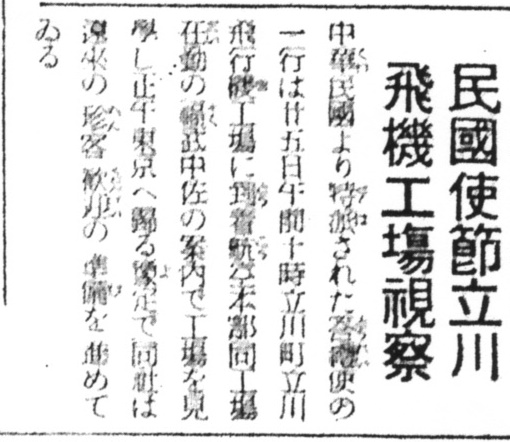 民國使節立川
飛機工場視察
中華民國より特派された答禮使の
一行は廿五日午前十時立川町立川
飛行機工場に到着航空本部同工場
在勤の 武中佐の案内で工場を見
學し正午東京へ歸る豫定で同社は
遠來の珍客歓迎の準備を進めて
ゐる